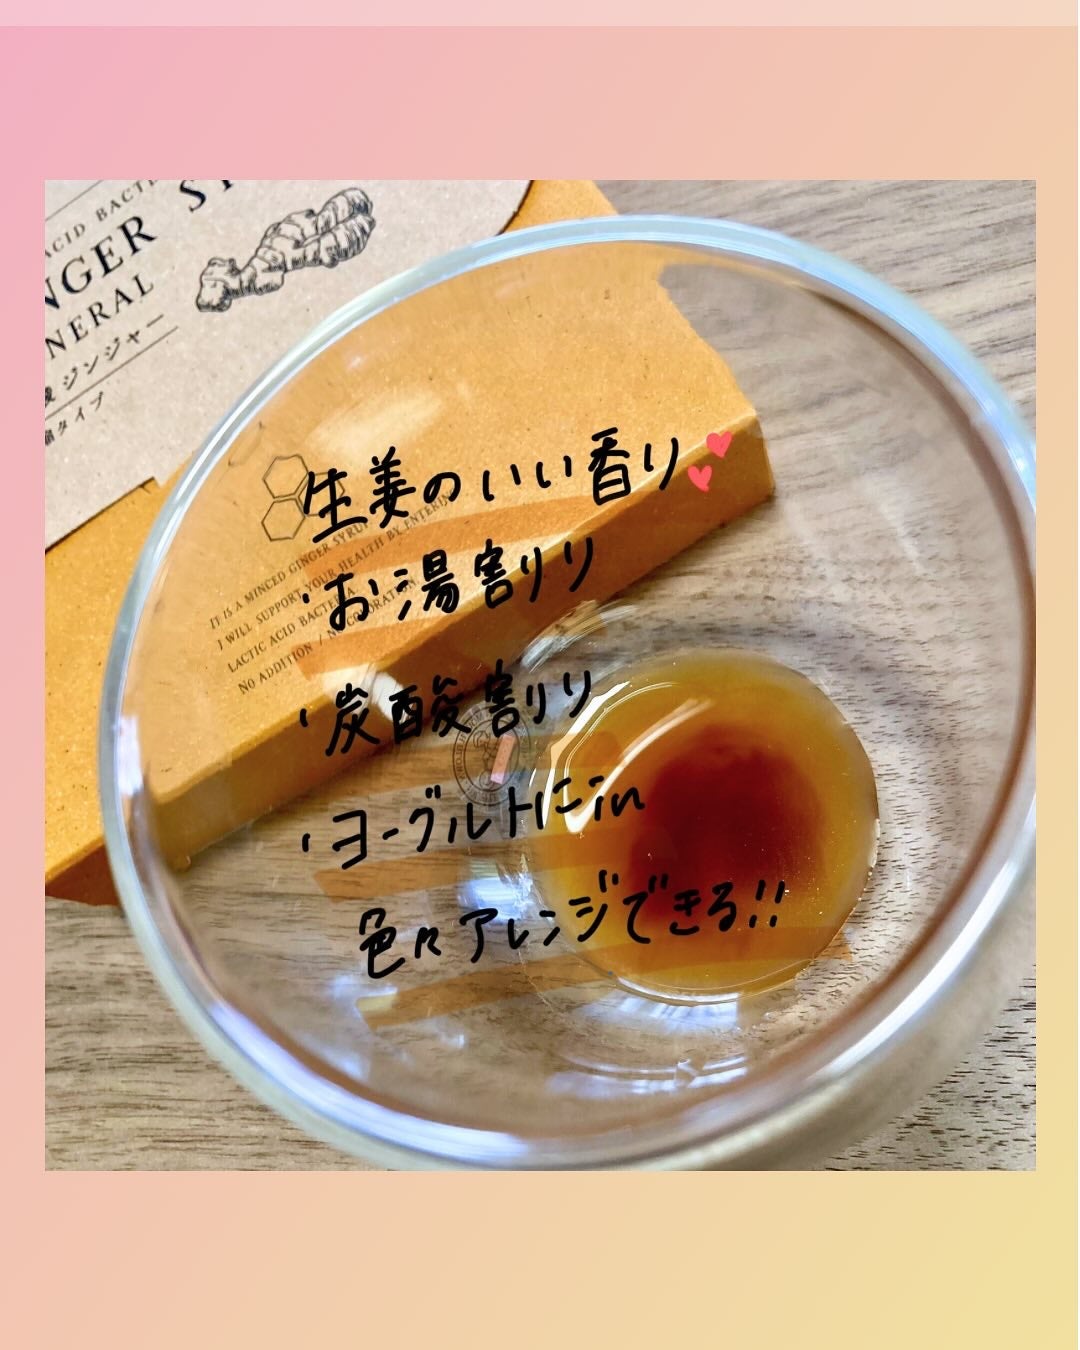 ACID BACT
NGER SY
NERAL
酸 ジンジャー
タイプ
生姜のいい香り
IT IS A MINCED GINGER SYRUP
I WILL SUPPORT YOUR HEALTH BY ENTERIN
LACTIC ACID BACTE
NO ADDITION / NO COLORATION
・お湯割り
・炭酸割り
・ヨーグルトにin
色々アレンジできる!!